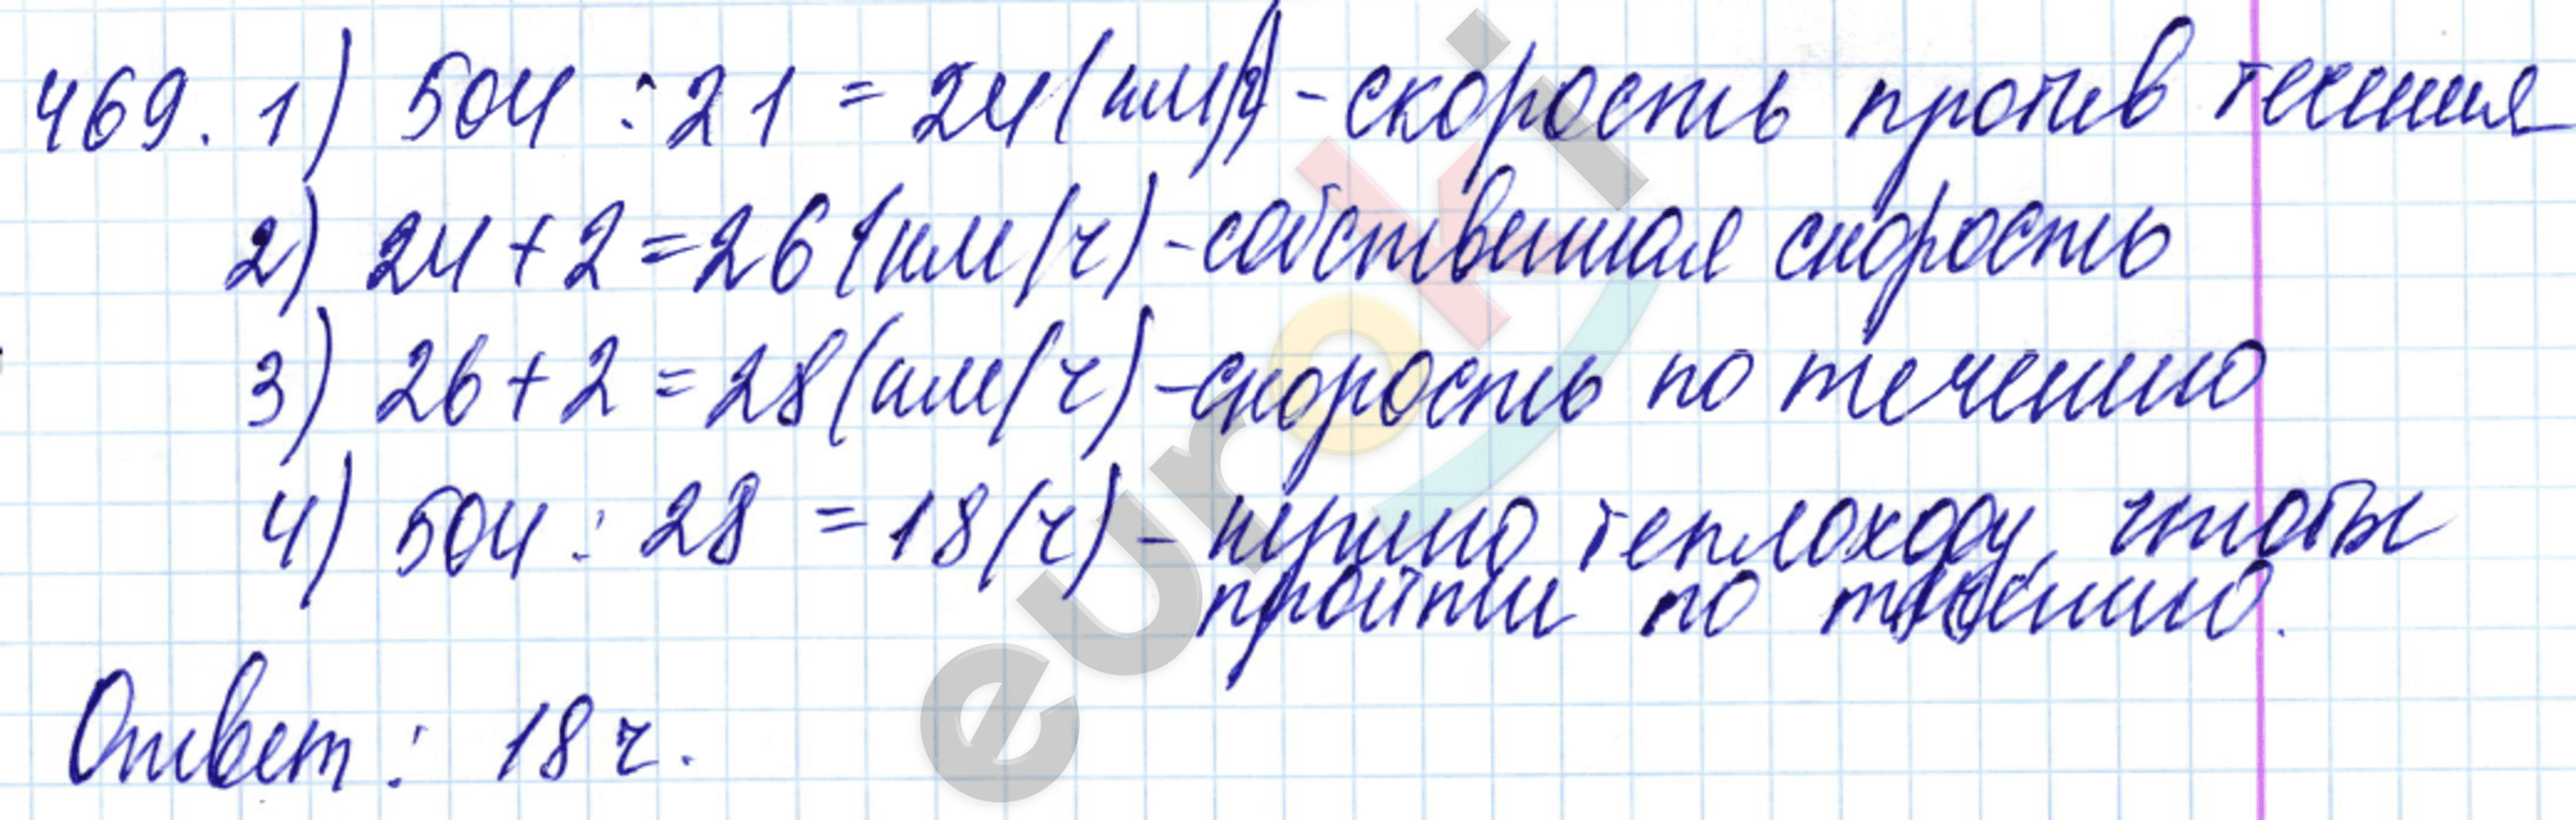 469. 1) 504 : 21 = 24 (км/ч) - скорость против течения
2) 24 + 2 = 26 (км/ч) - собственная скорость
3) 26 + 2 = 28 (км/ч) - скорость по течению
4) 504 : 28 = 18 (ч) - нужно теплоходу, чтобы
пройти по течению.
Ответ: 18 ч.
euroki